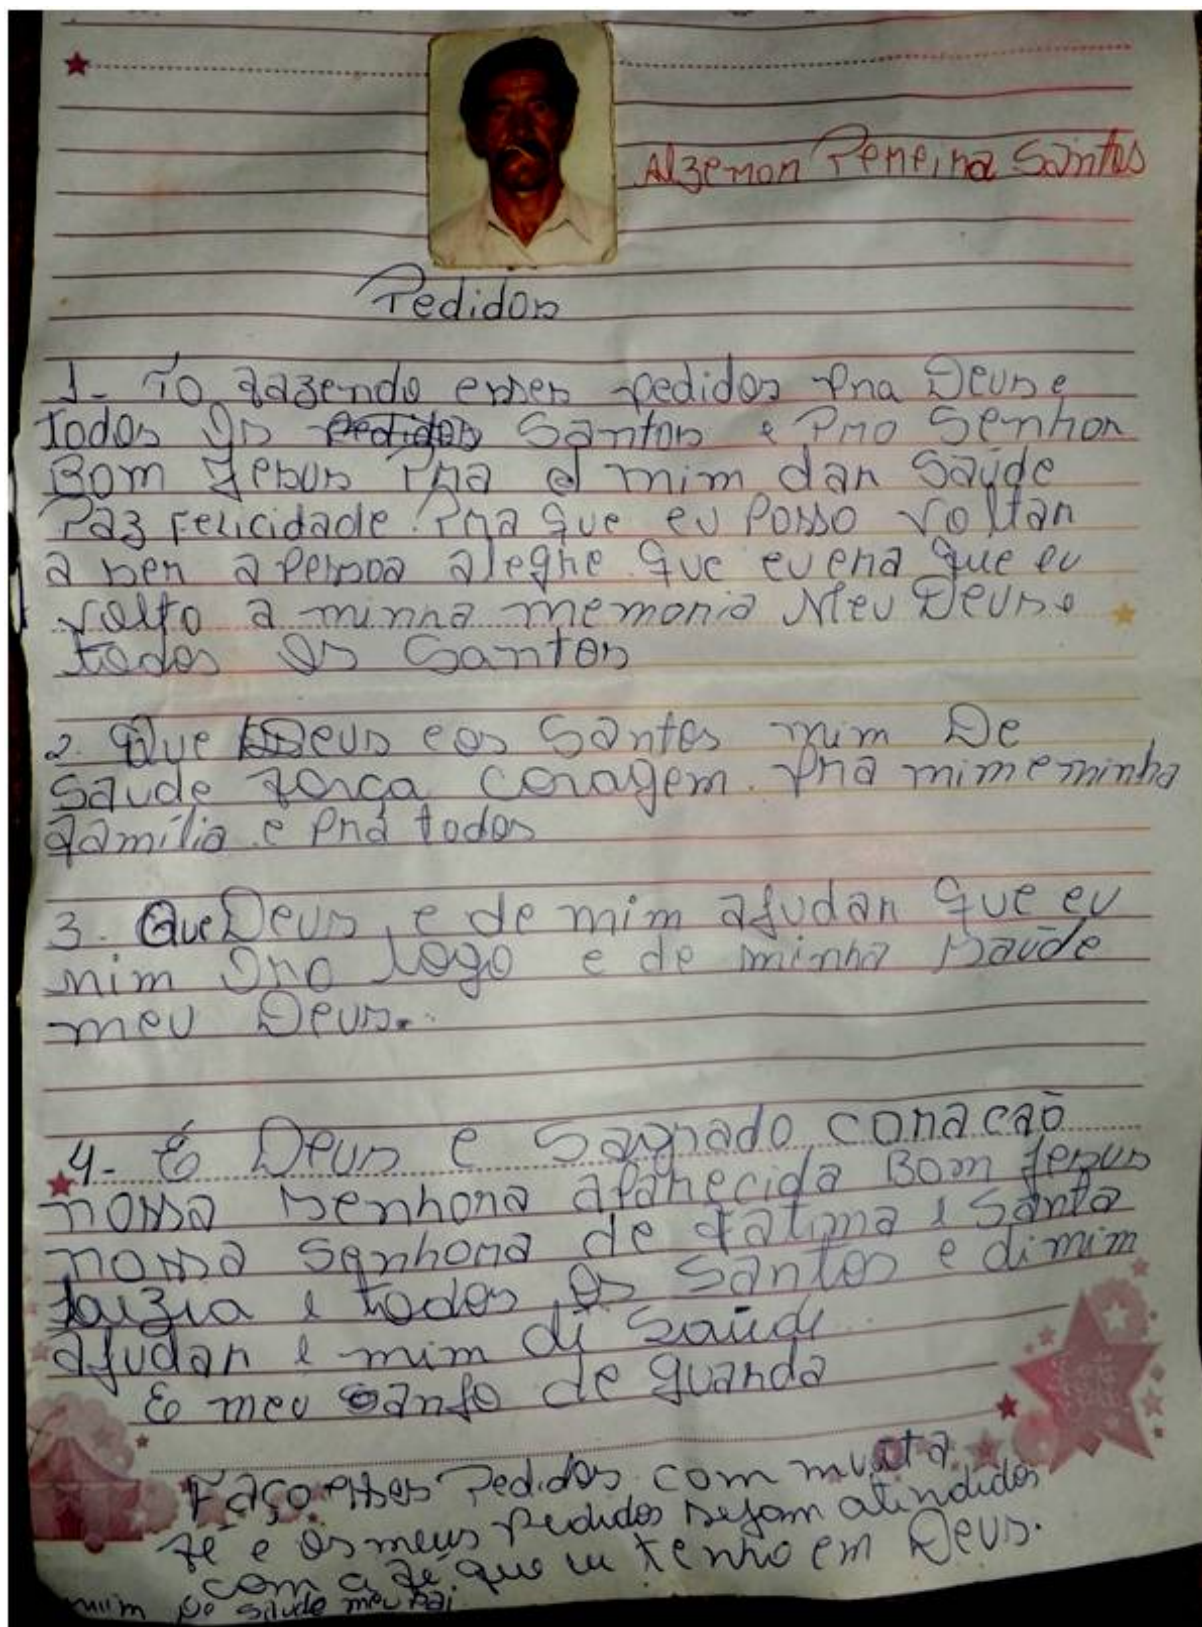 Alzemon Pereira Santos
Pedidos
1- To fazendo esses pedidos pra Deus e
todos os pedidos Santos e Pro Senhor
Bom Jesus Pra e mim dar Saúde
Paz Felicidade. Pra que eu Posso voltar
a ser a Pessoa alegre que eu era que eu
volto a minha memoria Meu Deus e
todos os Santos
2. Que Deus e os Santos mim De
Saude força coragem. Pra mim e minha
família e Pra todos
3. Que Deus, e de mim ajudar que eu
mim Oro logo e de minha saúde
meu Deus.
4- E Deus e Sagrado coracão
nossa senhora aparecida Bom Jesus
nossa Senhora de fatima e Santa
luzia e todos os Santos e di mim
ajudar e mim di Saúdi
E meu Santo de guarda
Faço esses Pedidos com muita
fé e os meus Pedidos sejam atindidos
com a fé que eu tenho em Deus.
mim De saude meu Pai